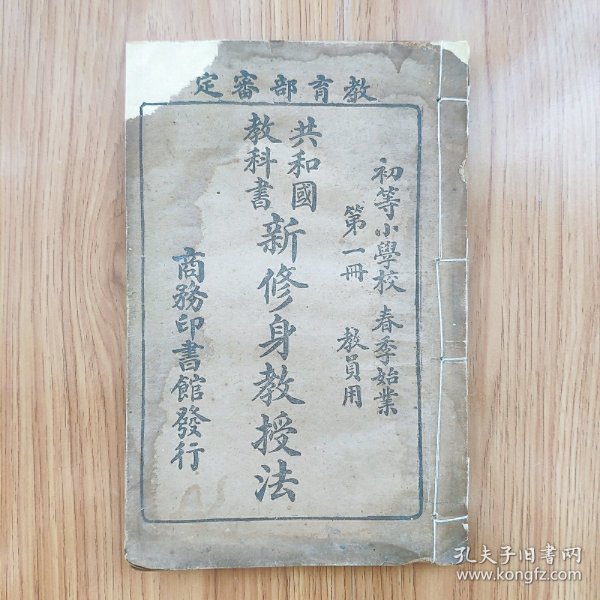 教育部審定
初等小學校 春季始業
第一冊 教員用
共和國
教科書
新修身教授法
商務印書館發行
孔夫子旧书网
www.kongfz.com